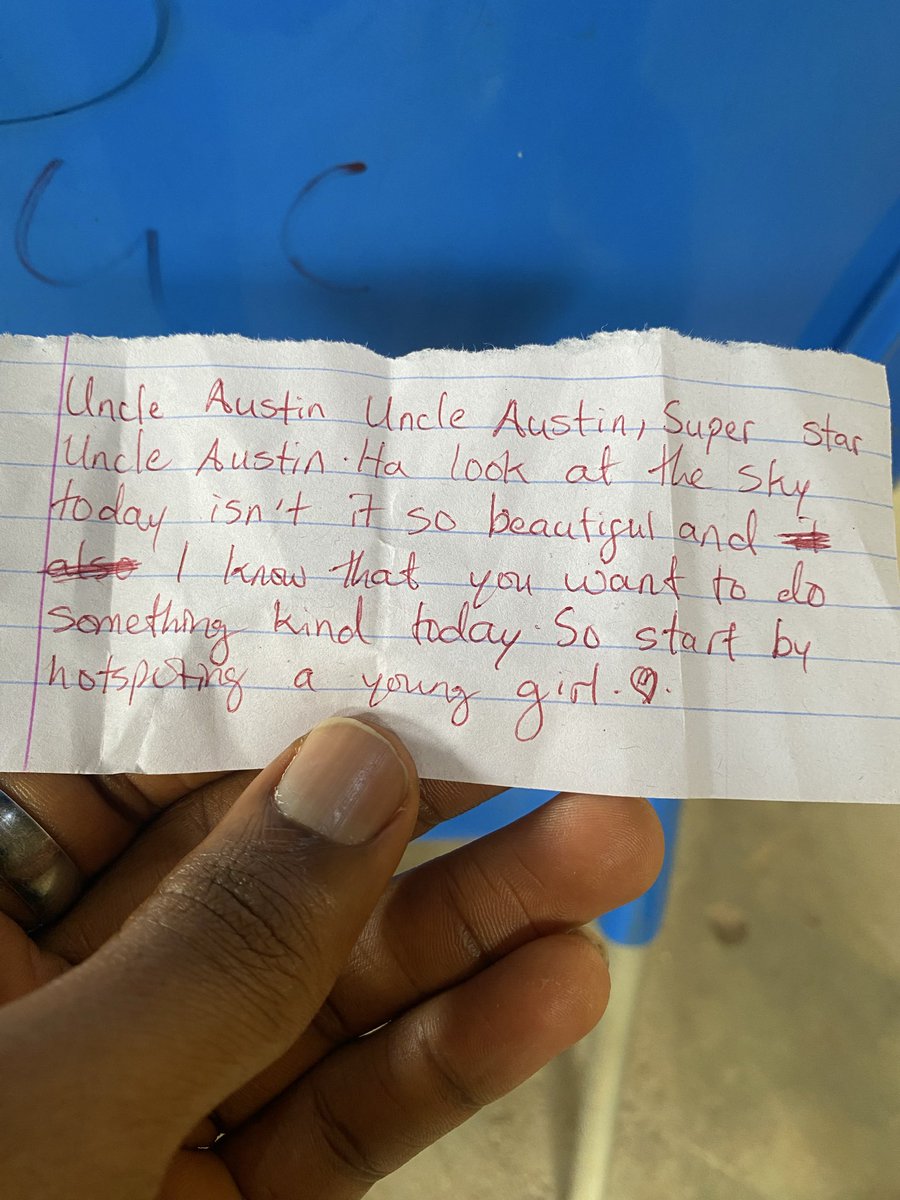 Uncle Austin Uncle Austin, Super star
Uncle Austin. Ha look at the sky
today isn't it so beautiful and it
also I know that you want to do
something kind today. So start by
hotspoting a young girl.